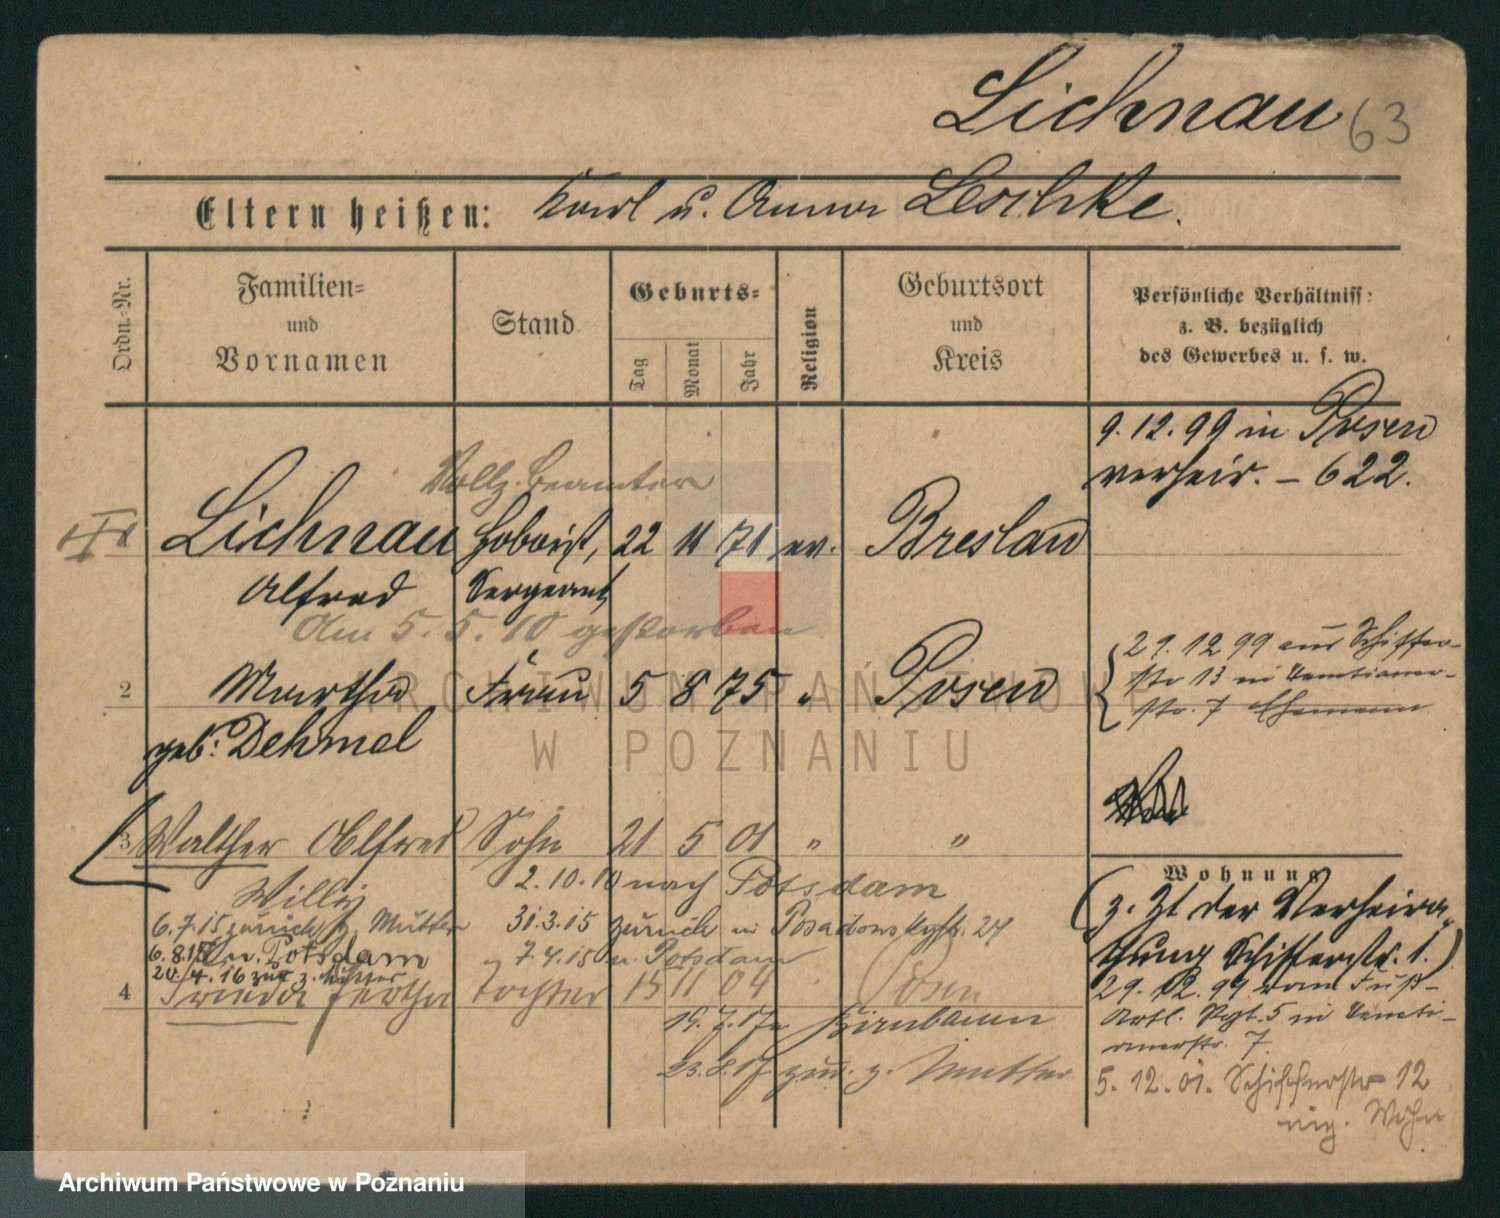 Lichnau 63
Eltern heißen: Karl u. Anna Leschke.
Ordn.-Nr.
Familien-
und
Vornamen
Stand
Geburts-
Tag
Monat
Jahr
Religion
Geburtsort
und
Kreis
Persönliche Verhältniss
z. B. bezüglich
des Gewerbes u. s. w.
9. 12. 99 in Posen
verheir. – 622.
Vollz. Beamter
1 Lichnau Hoboist, 22 11 71 ev. Breslau
Alfred Sergeant
Am 5. 5. 10 gestorben
2 Martha Frau 5 8 75 " Posen
geb. Dehmel
29. 12 99 aus Schiffer-
str 13 in
str. 7 Ehemann
3 Walther Alfred Sohn 21 5 01 " "
Willy 2. 10. 10 nach Potsdam
6. 7. 15 zurück z. Mutter 31. 3. 15 zurück in 24
6. 8. 15 n. Potsdam 7. 4. 15 n. Potsdam
20. 4. 16 zur z. Mutter
4 Frieda Tochter 15 11 04 Posen
19. 7. 17 n Birnbaum
23. 8. 17 zur. z. Mutter
Wohnung
(z. Zt der Verheira-
thung Schifferstr. 1.)
29. 12. 99 vom Fuß-
Artl. Rgt. 5 in
str. 7
5. 12. 01. Schifferstr 12
eig. Wohn
ARCHIWUM PAŃSTWOWE
W POZNANIU
Archiwum Państwowe w Poznaniu